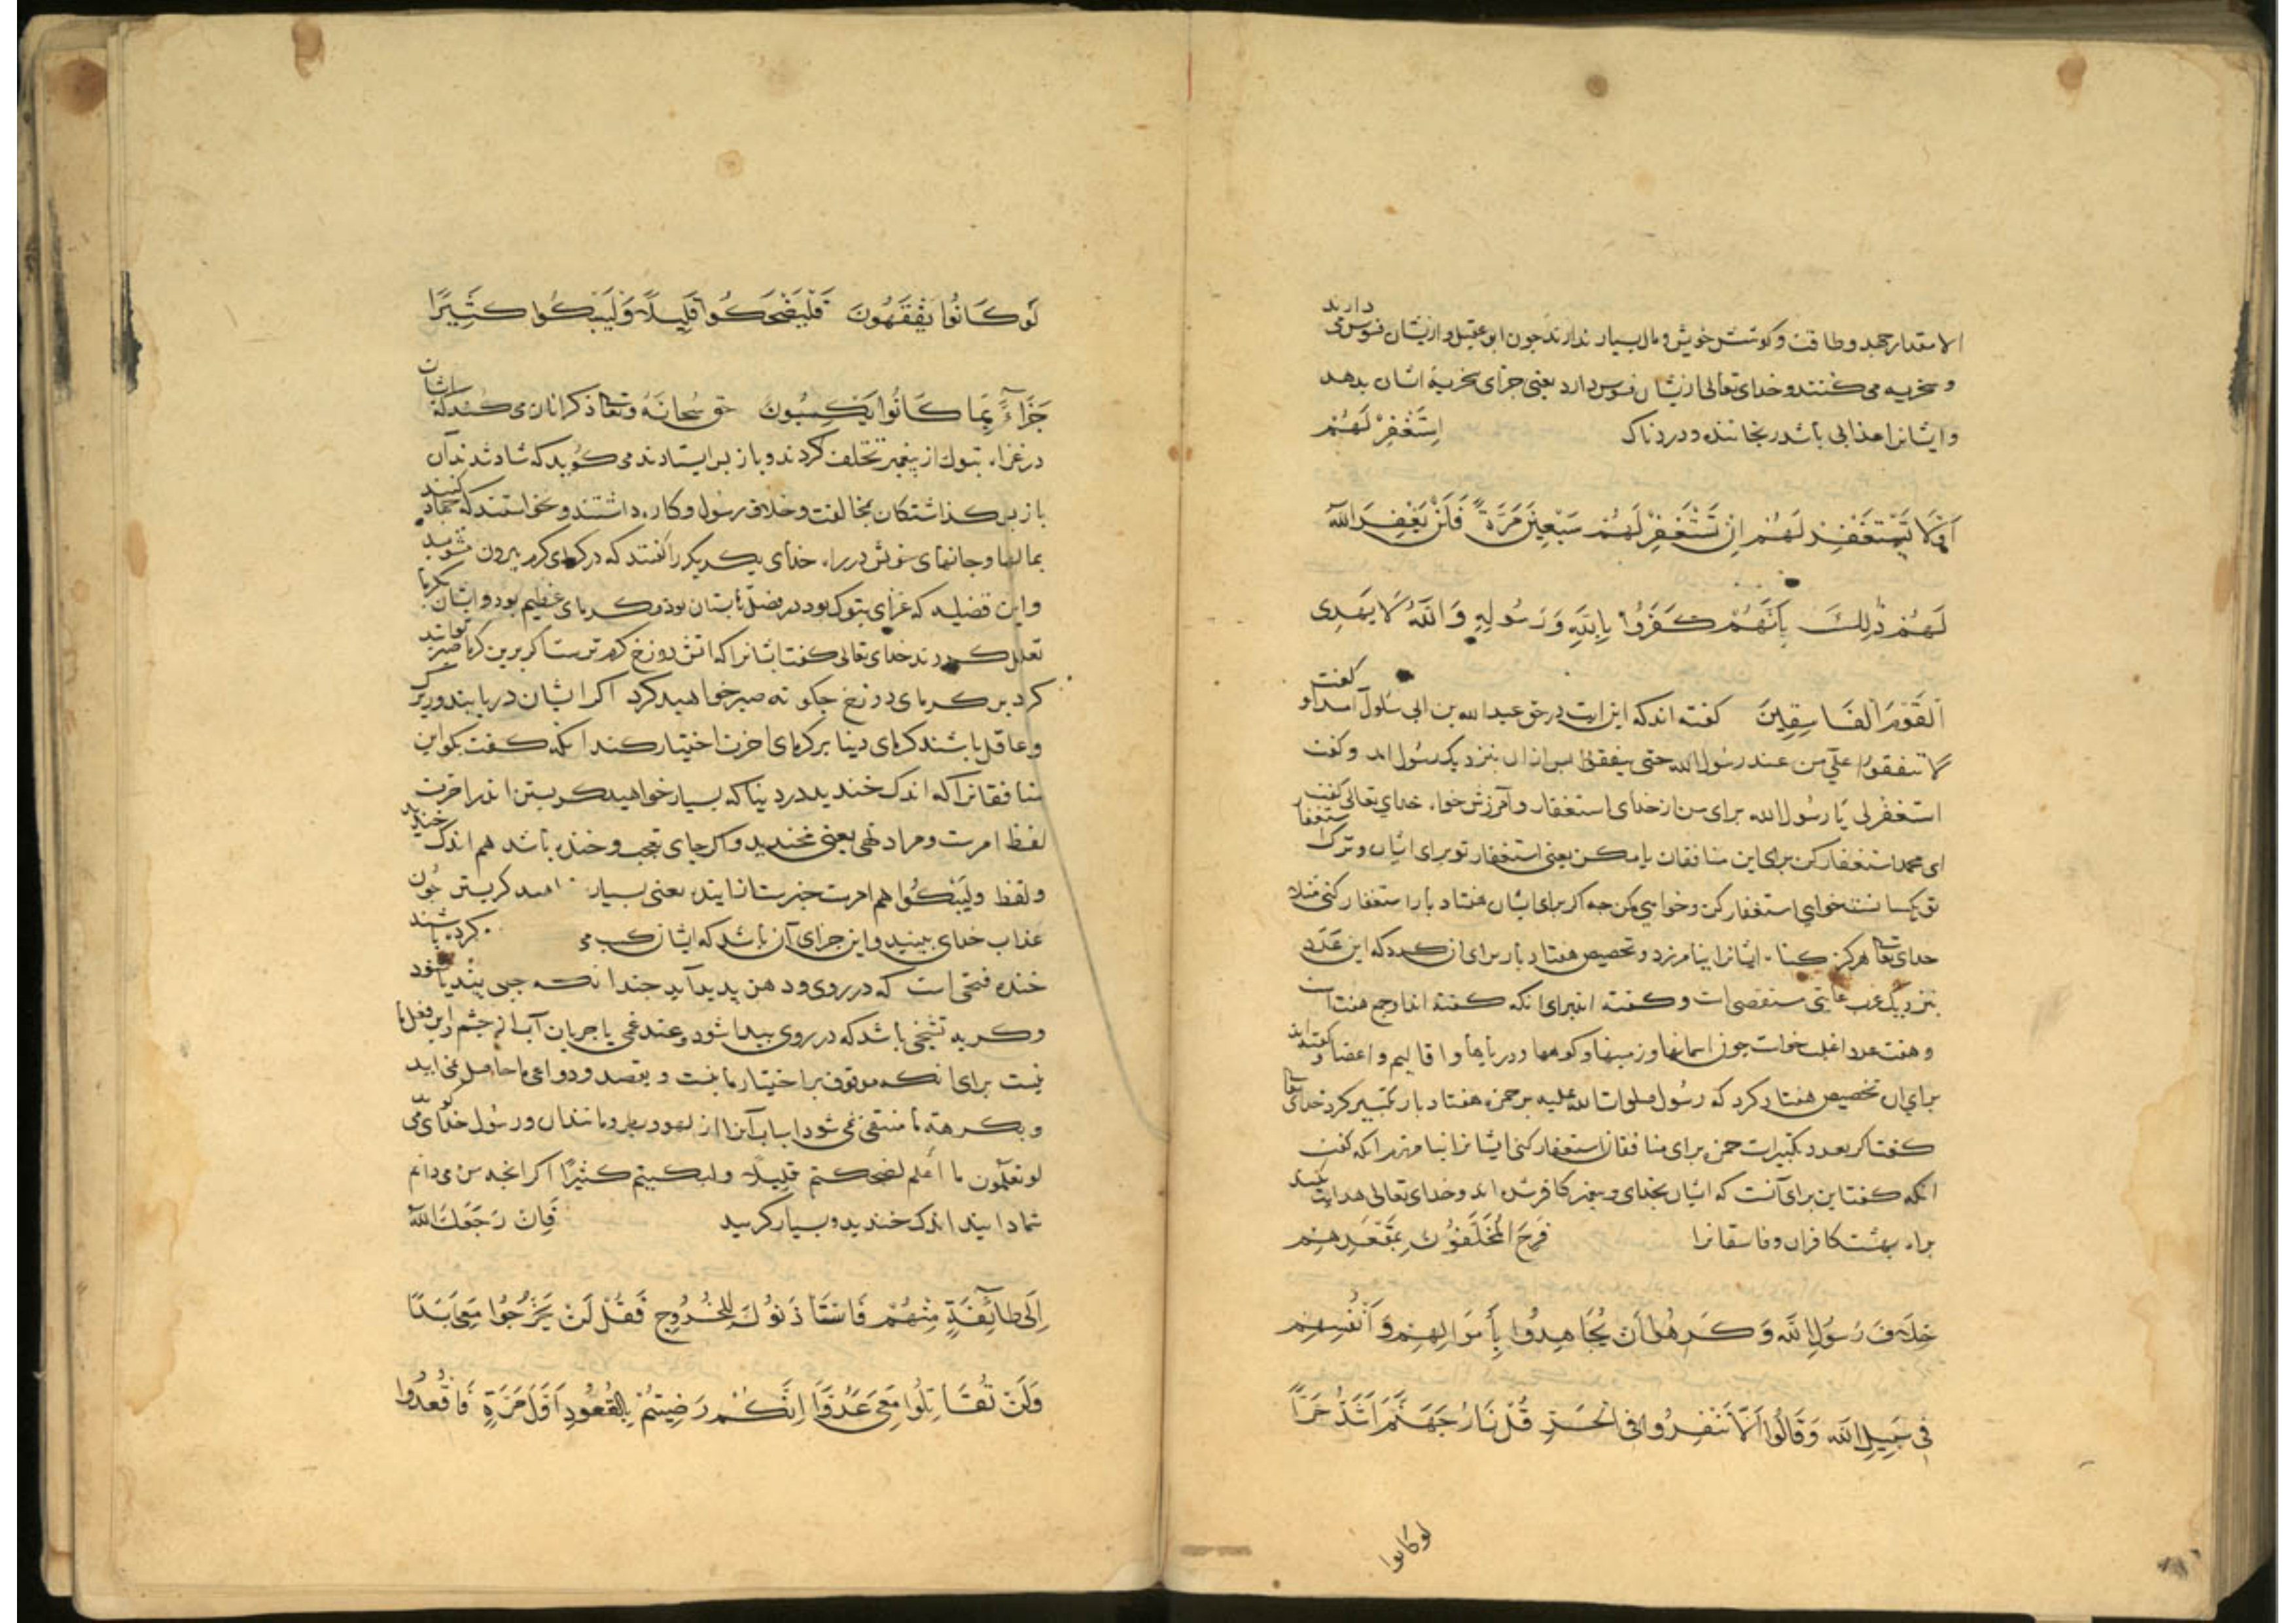 دارند
الا مقدار جهد و طاقت و کوشش خویش و مال بسیار ندارند چون ابو عقیل و ازیشان فسوس می
و سخریه می کنند و خدای تعالی ازیشان فسوس دارد یعنی جزای سخریهٔ ایشان بدهد
و ایشانرا عذابی باشد رنجاننده و دردناک اِسْتَغْفِرْ لَهُمْ
اَوْ لَا تَسْتَغْفِرْ لَهُمْ اِنْ تَسْتَغْفِرْ لَهُمْ سَبْعِینَ مَرَّةً فَلَنْ یَغْفِرَ اللّٰهُ
لَهُمْ ذٰلِكَ بِاَنَّهُمْ كَفَرُوا بِاللّٰهِ وَ رَسُولِهِ وَ اللّٰهُ لَا یَهْدِی
الْقَوْمَ الْفَاسِقِینَ کفته اند که این ایت در حق عبد الله بن ابی سلول آمد او کفت
لا تنفقوا علی من عند رسول الله حتی ینفضوا پس ازان بنزدیک رسول امد و کفت
استغفر لی یا رسول الله برای من از خدای استغفار و آمرزش خواه خدای تعالی کفت
ای محمد استغفار کن برای این منافقان یا مکن یعنی استغفار تو برای ایشان و ترک استغفار
تو یکسانست خواهی استغفار کن و خواهی مکن چه اکر برای ایشان هفتاد بار استغفار کنی مثلا
خدای تعا هرکز کناه ایشانرا نیامرزد و تخصیص هفتاد بار برای ان کرد که این عدد
بنزدیک عرب غایتی مستقصی است و کفته اند برای انکه کفته اند ارجح هفت است
و هفت عدد اغلب خواست چون اسمانها و زمینها و کوهها و دریاها و اقالیم و اعضا و کفته اند
برای ان تخصیص هفتاد کرد که رسول صلوات الله علیه بر حمزه هفتاد بار تکبیر کرد خدای تعا
کفت اکر بعدد تکبیرات حمزه برای منافقان استغفار کنی ایشانرا نیامرزم انکه کفت
انکه کفت این برای آنست که ایشان بخدای و پیغمبر کافر شده اند و خدای تعالی هدایت نکند
براه بهشت کافران و فاسقانرا فَرِحَ الْمُخَلَّفُونَ بِمَقْعَدِهِمْ
خِلَافَ رَسُولِ اللّٰهِ وَ كَرِهُوا اَنْ یُجَاهِدُوا بِاَمْوَالِهِمْ وَ اَنْفُسِهِمْ
فِی سَبِیلِ اللّٰهِ وَ قَالُوا لَا تَنْفِرُوا فِی الْحَرِّ قُلْ نَارُ جَهَنَّمَ اَشَدُّ حَرًّا
لو كانوا
لَوْ كَانُوا یَفْقَهُونَ فَلْیَضْحَكُوا قَلِیلًا وَ لْیَبْكُوا كَثِیرًا
جَزَاءً بِمَا كَانُوا یَكْسِبُونَ حق سُبحانَهُ و تعا ذکر انان می کند که ایشان
در غزاء تبوک از پیغمبر تخلف کردند و باز پس ایستادند می کوید که شاد شدند آن
باز پس کذاشتکان بمخالفت و خلاف رسول و کاره داشتند و نخواستند که جهاد کنند
بمالها و جانهای خویش در راه خدای یکدیکر را کفتند که در کرمای کرم بیرون مشوید
و این قضیه که غزای تبوک بود در فصل تابستان بود و کرمای عظیم بود و ایشان بکرما
تعلل کردند خدای تعالی کفت ایشانرا که اتش دوزخ کرم ترست اکر برین کرما صبر نتوانید
کرد بر کرمای دوزخ چکونه صبر خواهید کرد اکر ایشان دریابند و زیرک
و عاقل باشند کرمای دینا بر کرمای اخرت اختیار کنند انکه کفت بکو این
منافقانرا که اندک خندید در دینا که بسیار خواهید کریستن اندر اخرت
لفظ امرست و مراد نهی یعنی مخندید و اکر جای تعجب و خنده باشد هم اندک خندید
و لفظ ولیبکوا هم امرست یعنی بسیار کریستن چون
عذاب خدای ببینید و این جزای آن باشد که ایشان کسب می کرده باشند
خنده فتحی است که در روی و دهن پدید آید چندانکه
و کریه تشنجی باشد که در روی پیدا شود و عند غمی با جریان آب از چشم و این فعل ما
نیست برای انکه موقوف بر اختیار ما نیست و بقصد و دواعی ما حاصل نمی اید
و بکراهة ما منتفی نمی شود و رسول خدای می کوید
لو تعلمون ما أعلم لضحکتم قلیلا و لبکیتم کثیرًا اکر انچه من می دانم
شما دانید اندک خندید و بسیار کریید فَاِنْ رَجَعَكَ اللّٰهُ
اِلَی طَائِفَةٍ مِنْهُمْ فَاسْتَأْذَنُوكَ لِلْخُرُوجِ فَقُلْ لَنْ تَخْرُجُوا مَعِیَ اَبَدًا
وَ لَنْ تُقَاتِلُوا مَعِیَ عَدُوًّا اِنَّكُمْ رَضِیتُمْ بِالْقُعُودِ اَوَّلَ مَرَّةٍ فَاقْعُدُوا